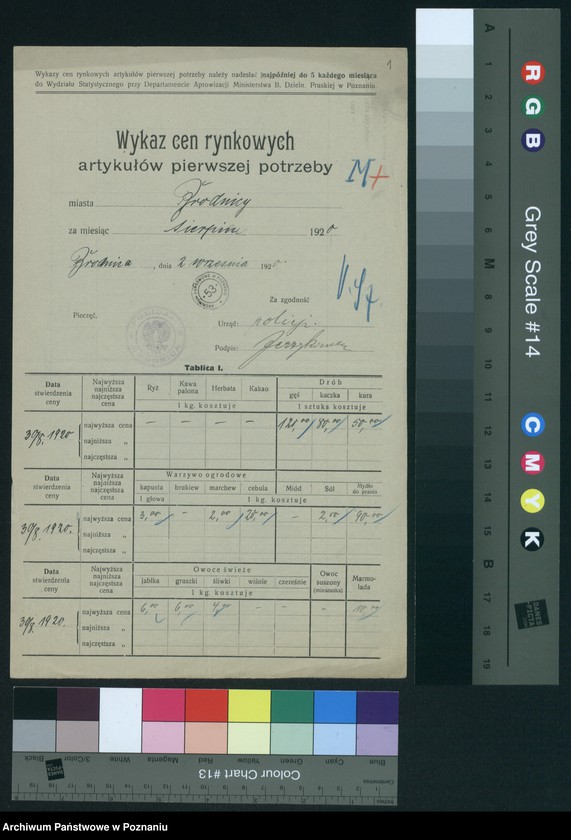 1
Wykazy cen rynkowych artykułów pierwszej potrzeby należy nadesłać najpóźniej do 5 każdego miesiąca
do Wydziału Statystycznego przy Departamencie Aprowizacji Ministerstwa B. Dzieln. Pruskiej w Poznaniu
Wykaz cen rynkowych
artykułów pierwszej potrzeby
M+
miasta Brodnicy
za miesiąc sierpień 1920
Brodnica, dnia 2 września 1920
53
Za zgodność
Pieczęć.
Urząd: policji.
Podpis:
Tablica I.
Data stwierdzenia ceny Najwyższa najniższa najczęstsza cena Ryż Kawa palona Herbata Kakao Drób
gęś kaczka kura
1 kg. kosztuje 1 sztuka kosztuje
30/8. 1920 najwyższa cena — — — — 120,00 80,00 50,00
najniższa „
najczęstsza „
Data stwierdzenia ceny Najwyższa najniższa najczęstsza cena Warzywo ogrodowe
kapusta brukiew marchew cebula Miód Sól Mydło do prania
1 głowa 1 kg. kosztuje
30/8. 1920. najwyższa cena 3,00 — 2,00 20,00 — 2,00 90,00
najniższa „
najczęstsza „
Data stwierdzenia ceny Najwyższa najniższa najczęstsza cena Owoce świeże Owoc suszony (mieszanka) Marmolada
jabłka gruszki śliwki wiśnie czereśnie
1 kg. kosztuje
30/8. 1920. najwyższa cena 6,00 6,00 4,00 — — —
najniższa „
najczęstsza „
A 1 2 3 4 5 6 M 8 9 10 11 12 13 14 15 B 17 18 19
R G B
Grey Scale #14
C M Y K
DANES PICTA .COM
Blue Cyan Green Yellow Red Magenta White 3/Color Black
Colour Chart #13
Centimetres
Inches
Archiwum Państwowe w Poznaniu